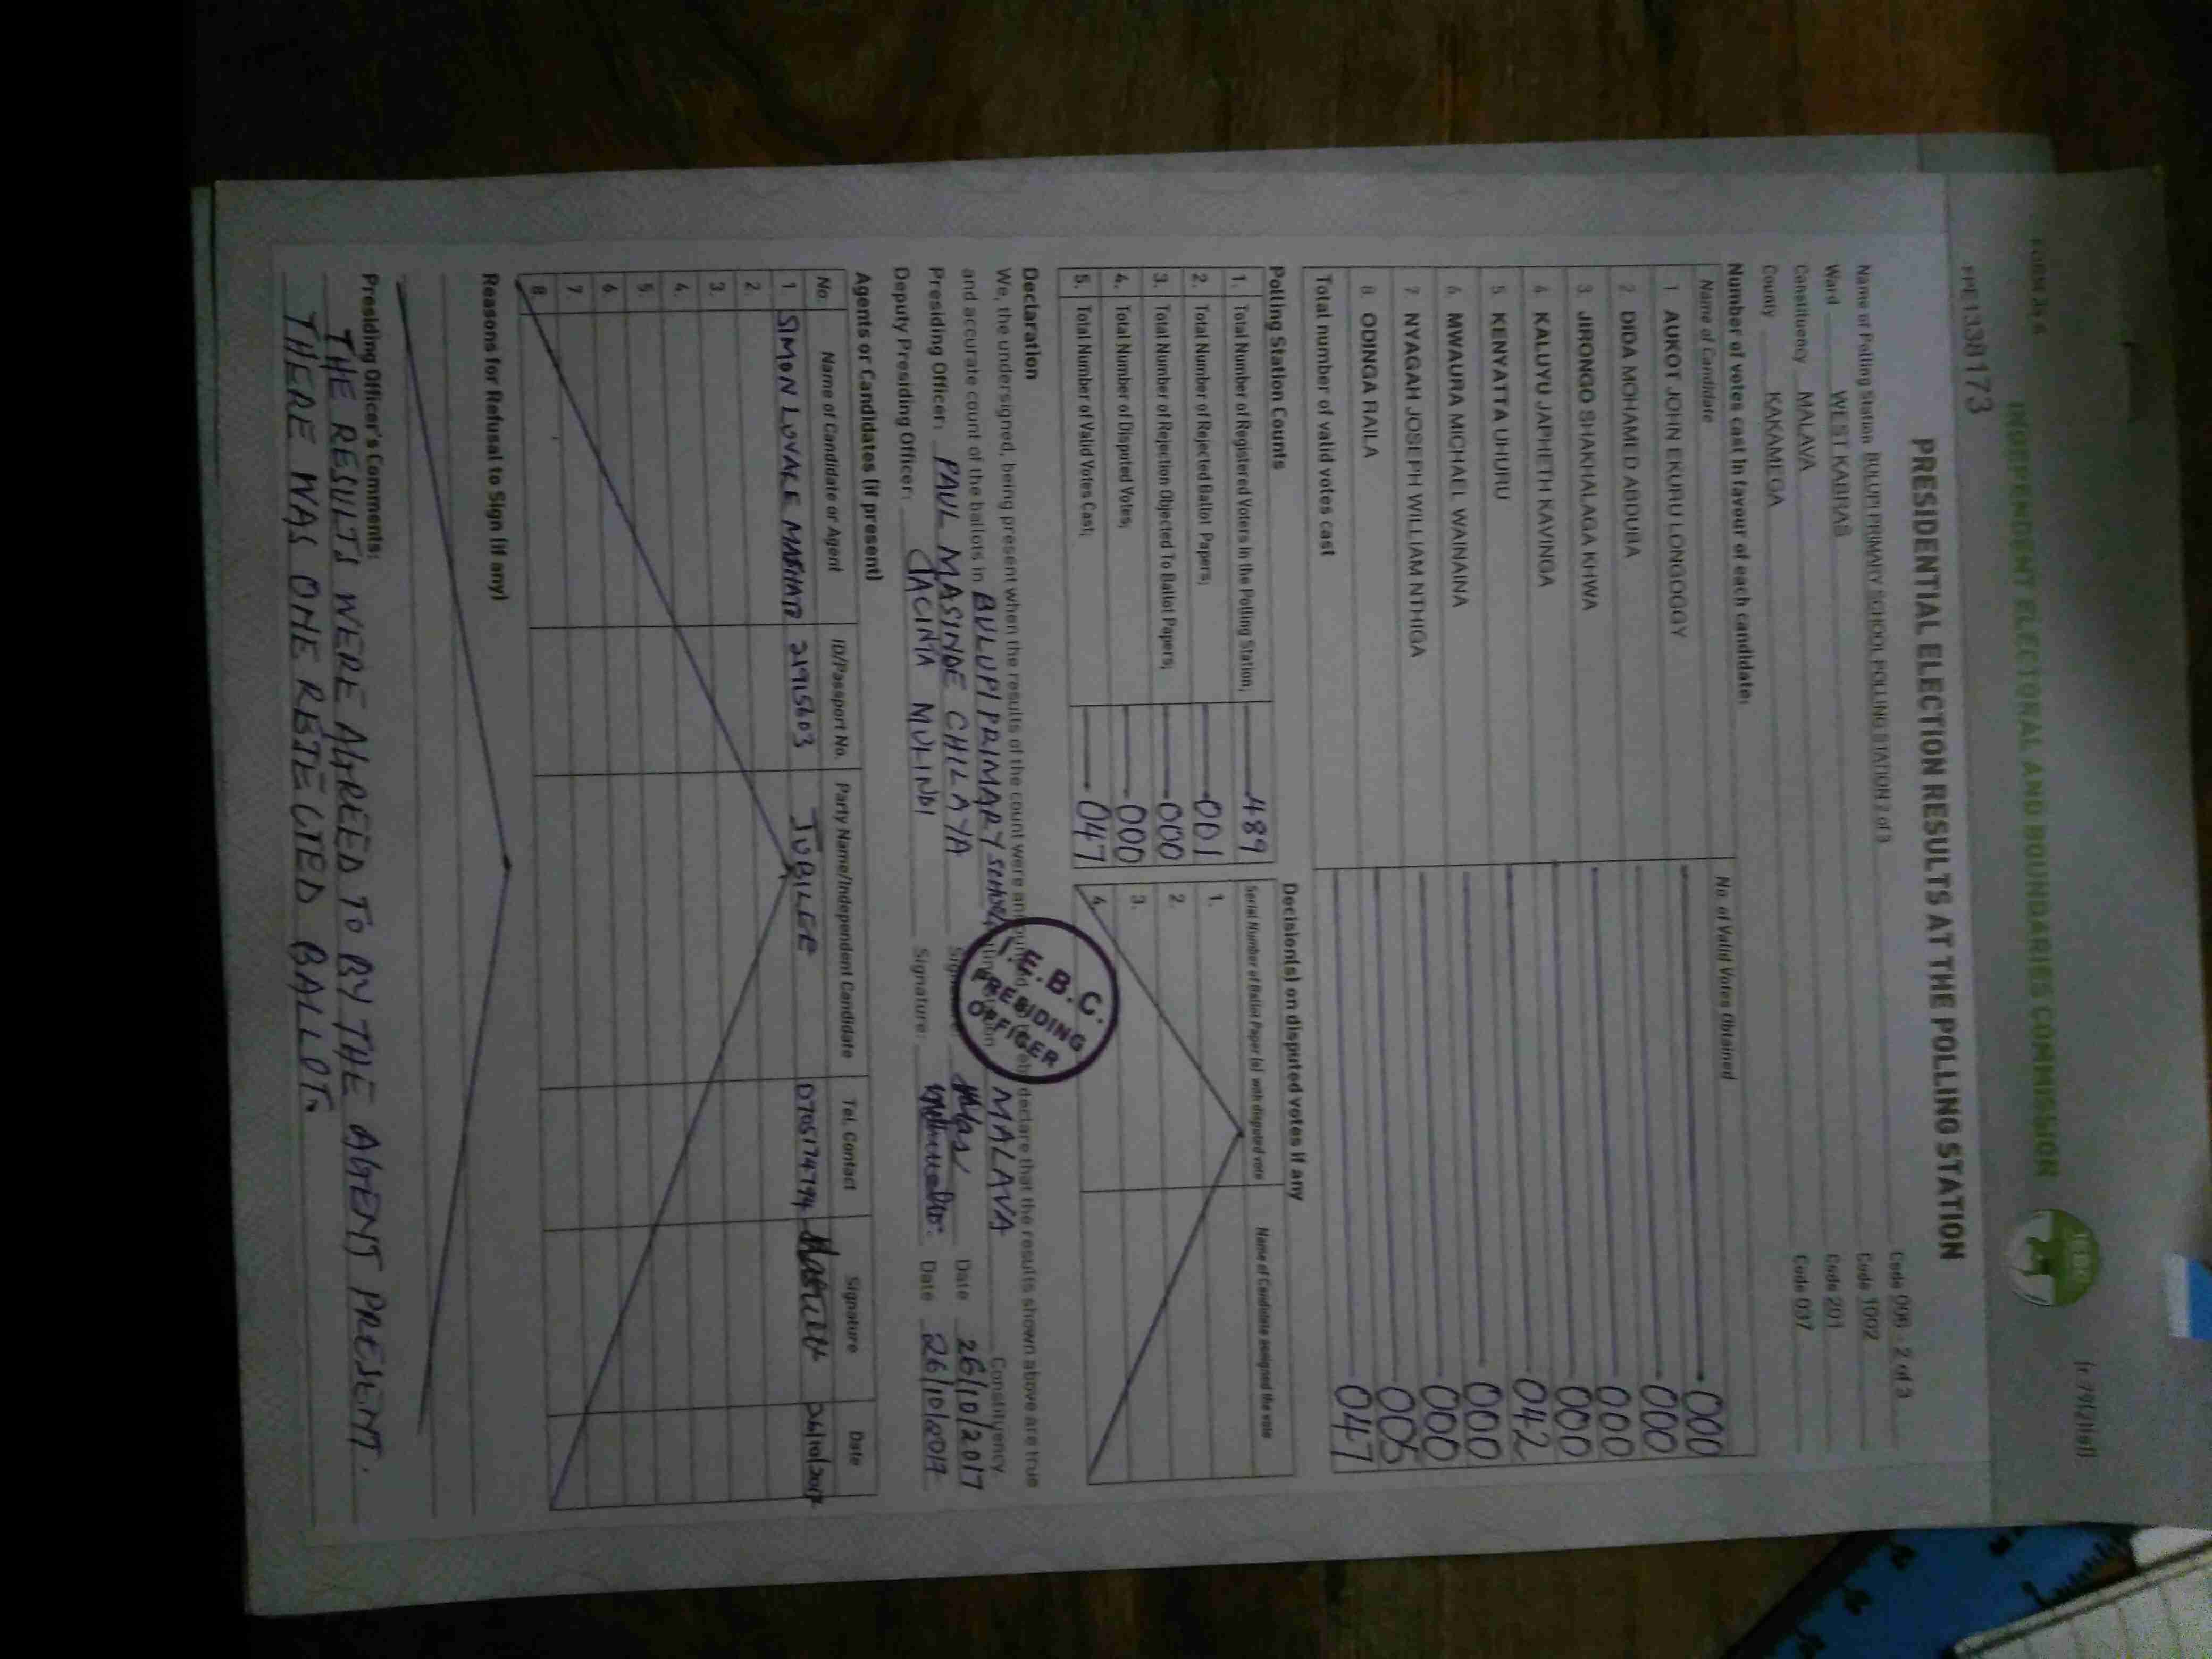 FORM 34A
(r.79(2)(a))
INDEPENDENT ELECTORAL AND BOUNDARIES COMMISSION
IEBC
PPE1338173
PRESIDENTIAL ELECTION RESULTS AT THE POLLING STATION
Name of Polling Station BULUPI PRIMARY SCHOOL POLLING STATION 2 of 3 Code 006 - 2 of 3
Ward WEST KABRAS Code 1002
Constituency MALAVA Code 201
County KAKAMEGA Code 037
Number of votes cast in favour of each candidate:
Name of Candidate No. of Valid Votes Obtained
1. AUKOT JOHN EKURU LONGOGGY 000
2 DIDA MOHAMED ABDUBA 000
3 JIRONGO SHAKHALAGA KHWA 000
4 KALUYU JAPHETH KAVINGA 000
5 KENYATTA UHURU 042
6 MWAURA MICHAEL WAINAINA 000
7 NYAGAH JOSEPH WILLIAM NTHIGA 000
8 ODINGA RAILA 005
Total number of valid votes cast 047
Polling Station Counts
1. Total Number of Registered Voters in the Polling Station; 489
2. Total Number of Rejected Ballot Papers; 001
3. Total Number of Rejection Objected To Ballot Papers; 000
4. Total Number of Disputed Votes; 000
5. Total Number of Valid Votes Cast; 047
Decision(s) on disputed votes if any
Serial Number of Ballot Paper (s) with disputed vote Name of Candidate assigned the vote
1.
2.
3.
4.
Declaration
We, the undersigned, being present when the results of the count were announced, do hereby declare that the results shown above are true
and accurate count of the ballots in BULUPI PRIMARY SCHOOL polling station MALAVA Constituency
Presiding Officer: PAUL MASINDE CHILAYA Signature: Date 26/10/2017
Deputy Presiding Officer: JACINTA MULINDI Signature: Date 26/10/2017
I.E.B.C.
PRESIDING
OFFICER
Agents or Candidates (if present)
No. Name of Candidate or Agent ID/Passport No. Party Name/Independent Candidate Tel. Contact Signature Date
1. SIMON LUVALE 21915603 JUBILEE 0705174794 26/10/2017
2.
3.
4.
5.
6.
7.
8.
Reasons for Refusal to Sign (if any)
Presiding Officer's Comments:
THE RESULTS WERE AGREED TO BY THE AGENT PRESENT.
THERE WAS ONE REJECTED BALLOT.